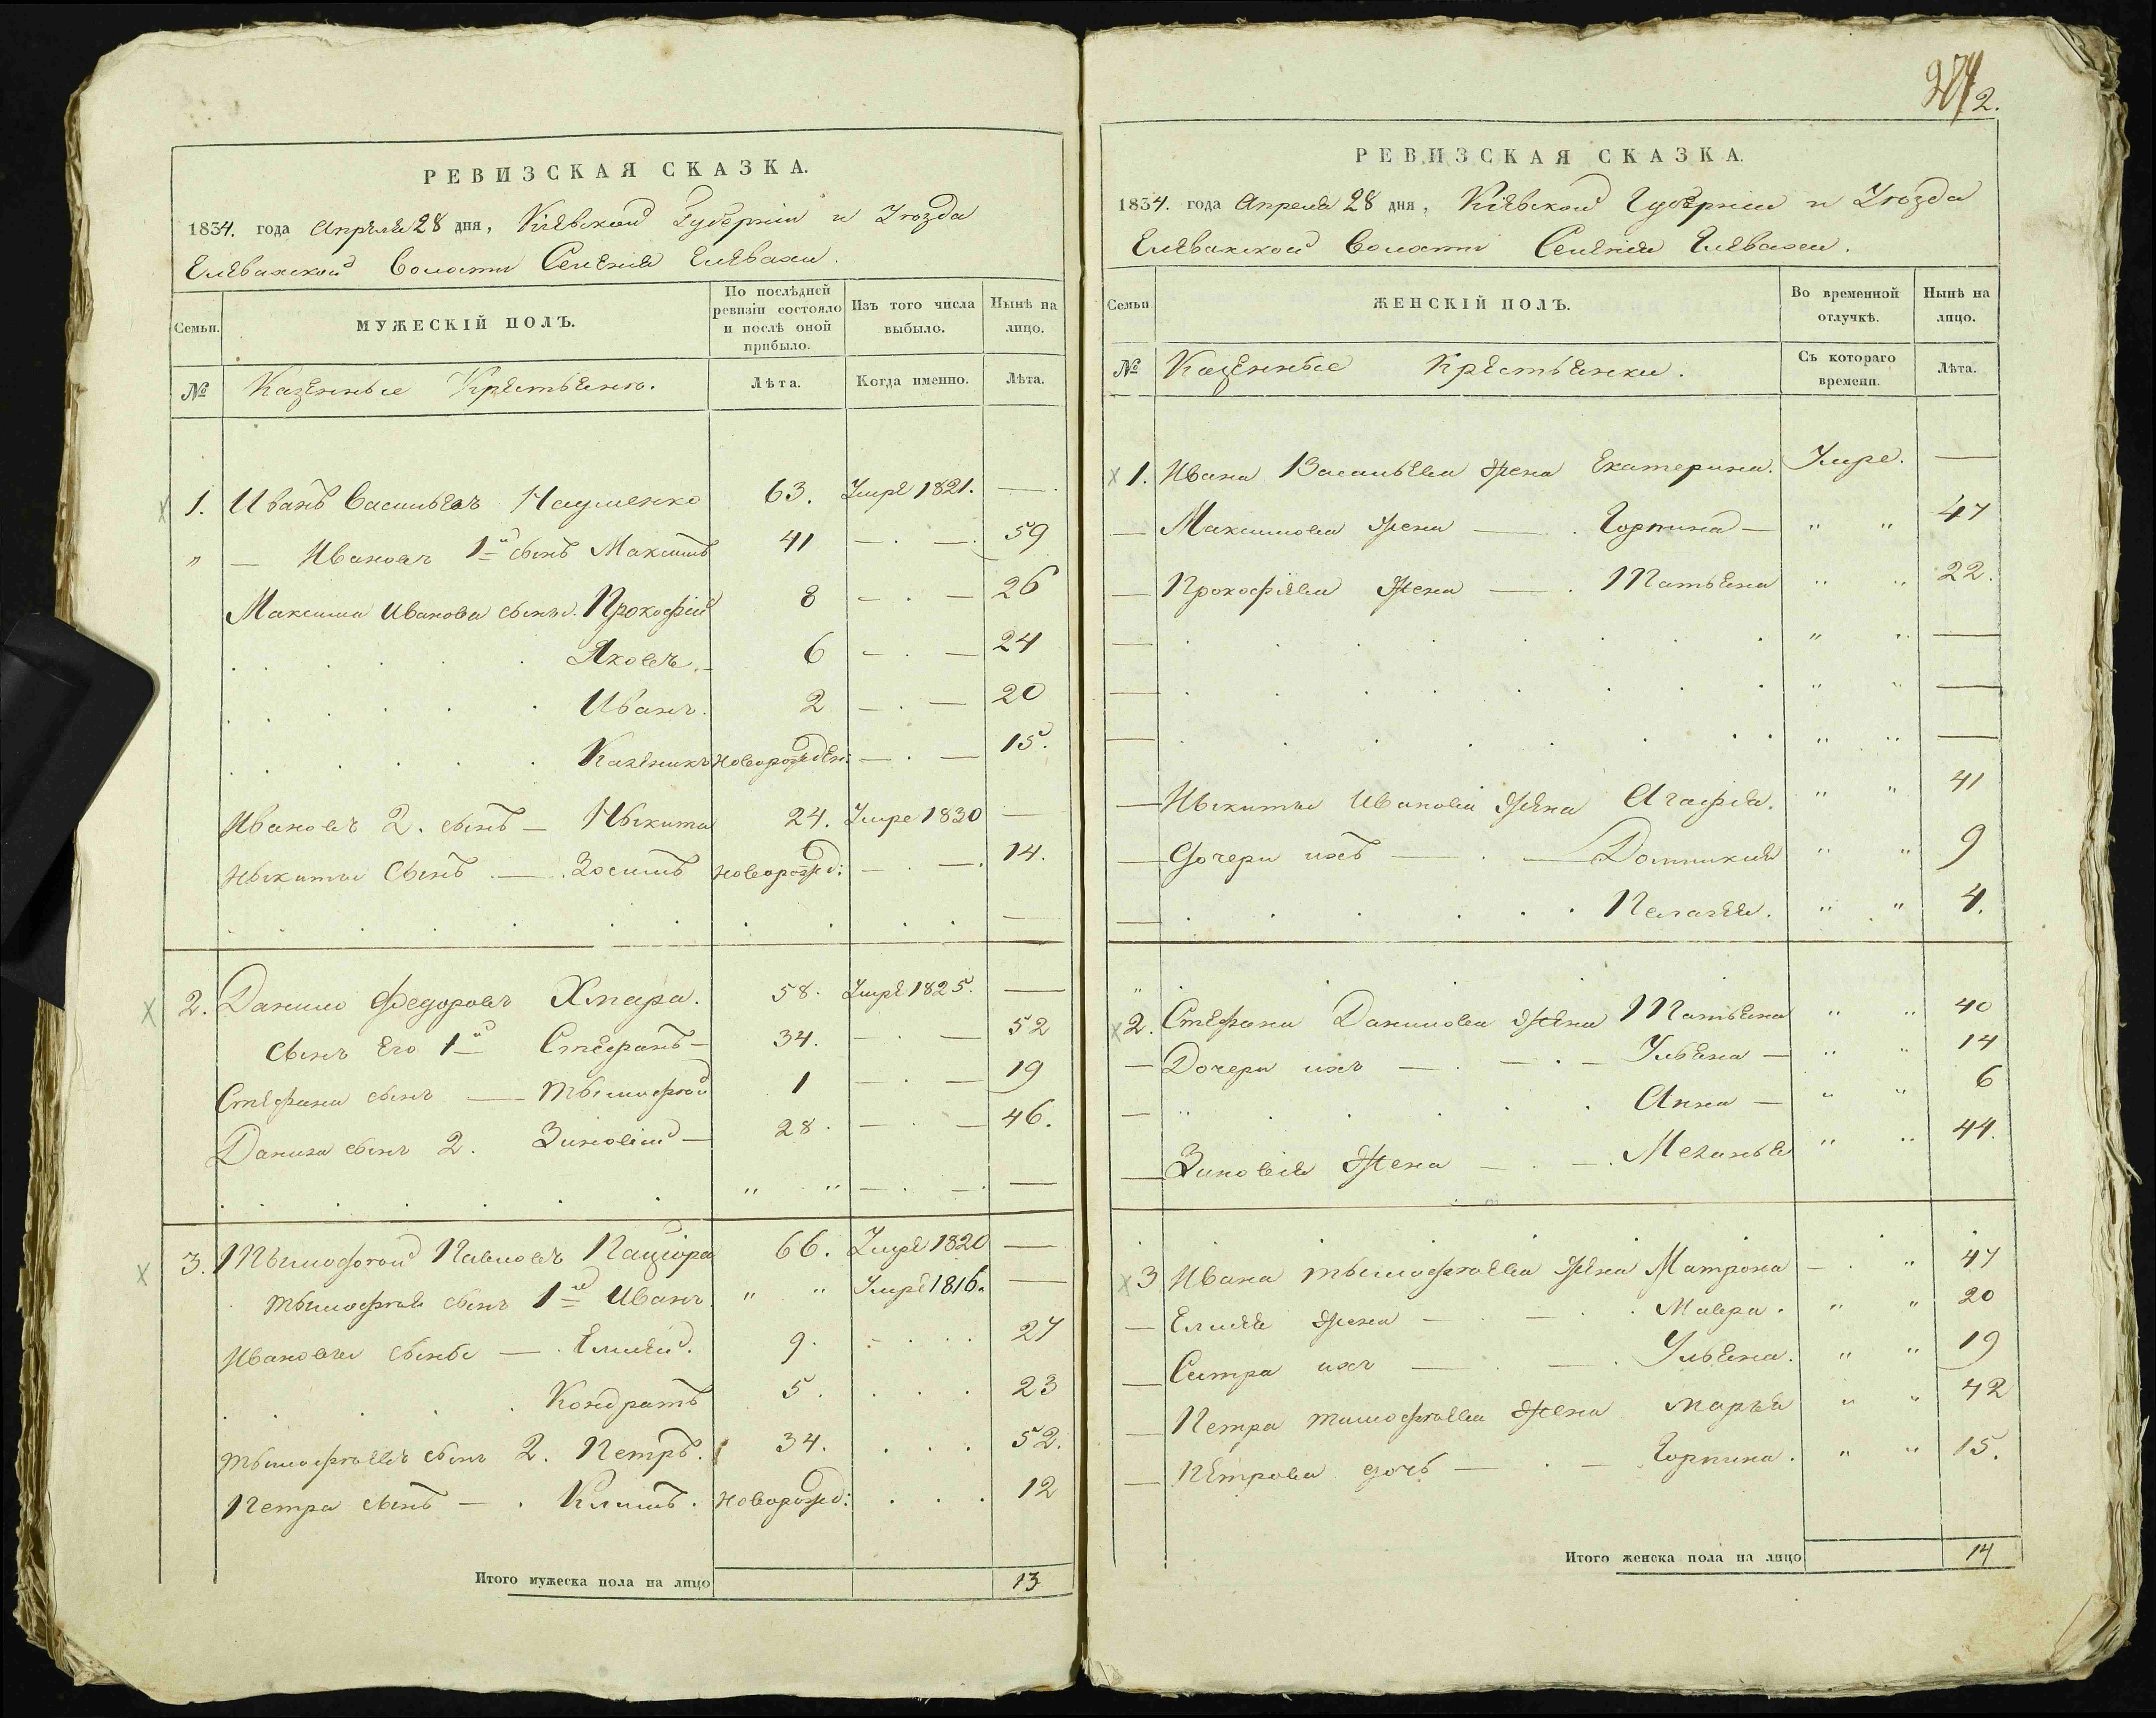 РЕВИЗСКАЯ СКАЗКА.
1834. года Апреля 28 дня, Кіевской Губерніи и Уѣзда
Глевахской Волости Селенія Глевахи.
Семьи.
МУЖЕСКІЙ ПОЛЪ.
По послѣдней ревизіи состояло и послѣ оной прибыло.
Изъ того числа выбыло.
Нынѣ на лицо.
№ Казенные Крестьяне.
Лѣта. Когда именно. Лѣта.
1. Иванъ Васильевъ Науменко 63. Умре 1821. —
„ — Ивановъ 1й сынъ Максимъ 41 — . — 59
Максима Иванова сыны. Прокофій 8 — . — 26
Яковъ. 6 — . — 24
Иванъ. 2 — . — 20
Каленикъ новорожден: — . — 15.
Ивановъ 2. сынъ — Никита 24. Умре 1830 —
Никиты сынъ — . Зосимъ новорожд: — . — 14.
2. Данило Федоровъ Хмара. 58. Умре 1825. —
сынъ Его 1й Стефанъ — 34. — . — 52
Стефана сынъ — Тымофѣй 1 — . — 19
Данила сынъ 2. Зиновій — 28. — . — 46.
„ „ — . — . —
3. Тымофѣй Павловъ Пацюра 66. Умре 1820 —
Тымофѣя сынъ 1й Иванъ. „ „ Умре 1816. —
Ивановы сыны — . Елисей. 9. . . . 27
Кондратъ 5. . . . 23
Тымофѣевъ сынъ 2. Петръ. 34. . . . 52.
Петра сынъ — . Климъ. новорожд: . . . 12
Итого мужеска пола на лицо 13
2.
РЕВИЗСКАЯ СКАЗКА.
1834. года Апреля 28 дня, Кіевской Губерніи и Уѣзда
Глевахской Волости Селенія Глевахи.
Семьи
ЖЕНСКІЙ ПОЛЪ.
Во временной отлучкѣ.
Нынѣ на лицо.
№ Казенные Крестьянки.
Съ котораго времени. Лѣта.
1. Ивана Васильева жена Екатерина. Умре. —
— Максимова жена — . Горпина — „ „ 47
— Прокофіева жена — . Татьяна „ „ 22.
— „ „ —
— „ „ —
— „ „ —
— Никиты Иванова жена Агафія. „ „ 41
— Дочери ихъ — . — Домникія „ „ 9
— Пелагея. „ „ 4.
„
2. Стефана Данилова жена Татьяна „ „ 40
— Дочери ихъ — . — . — Ульяна — „ „ 14
— „ Анна — „ „ 6
— Зиновія жена — . — . Меланья „ „ 44.
3 Ивана Тымофѣева жена Матрона — . „ 47
— Елисея жена — . — . Мавра. „ „ 20
— Систра ихъ — . — . Ульяна. „ „ 19
— Петра Тимофѣева жена Марья „ „ 42
— Петрова дочь — . — Горпина. „ „ 15.
Итого женска пола на лицо 14